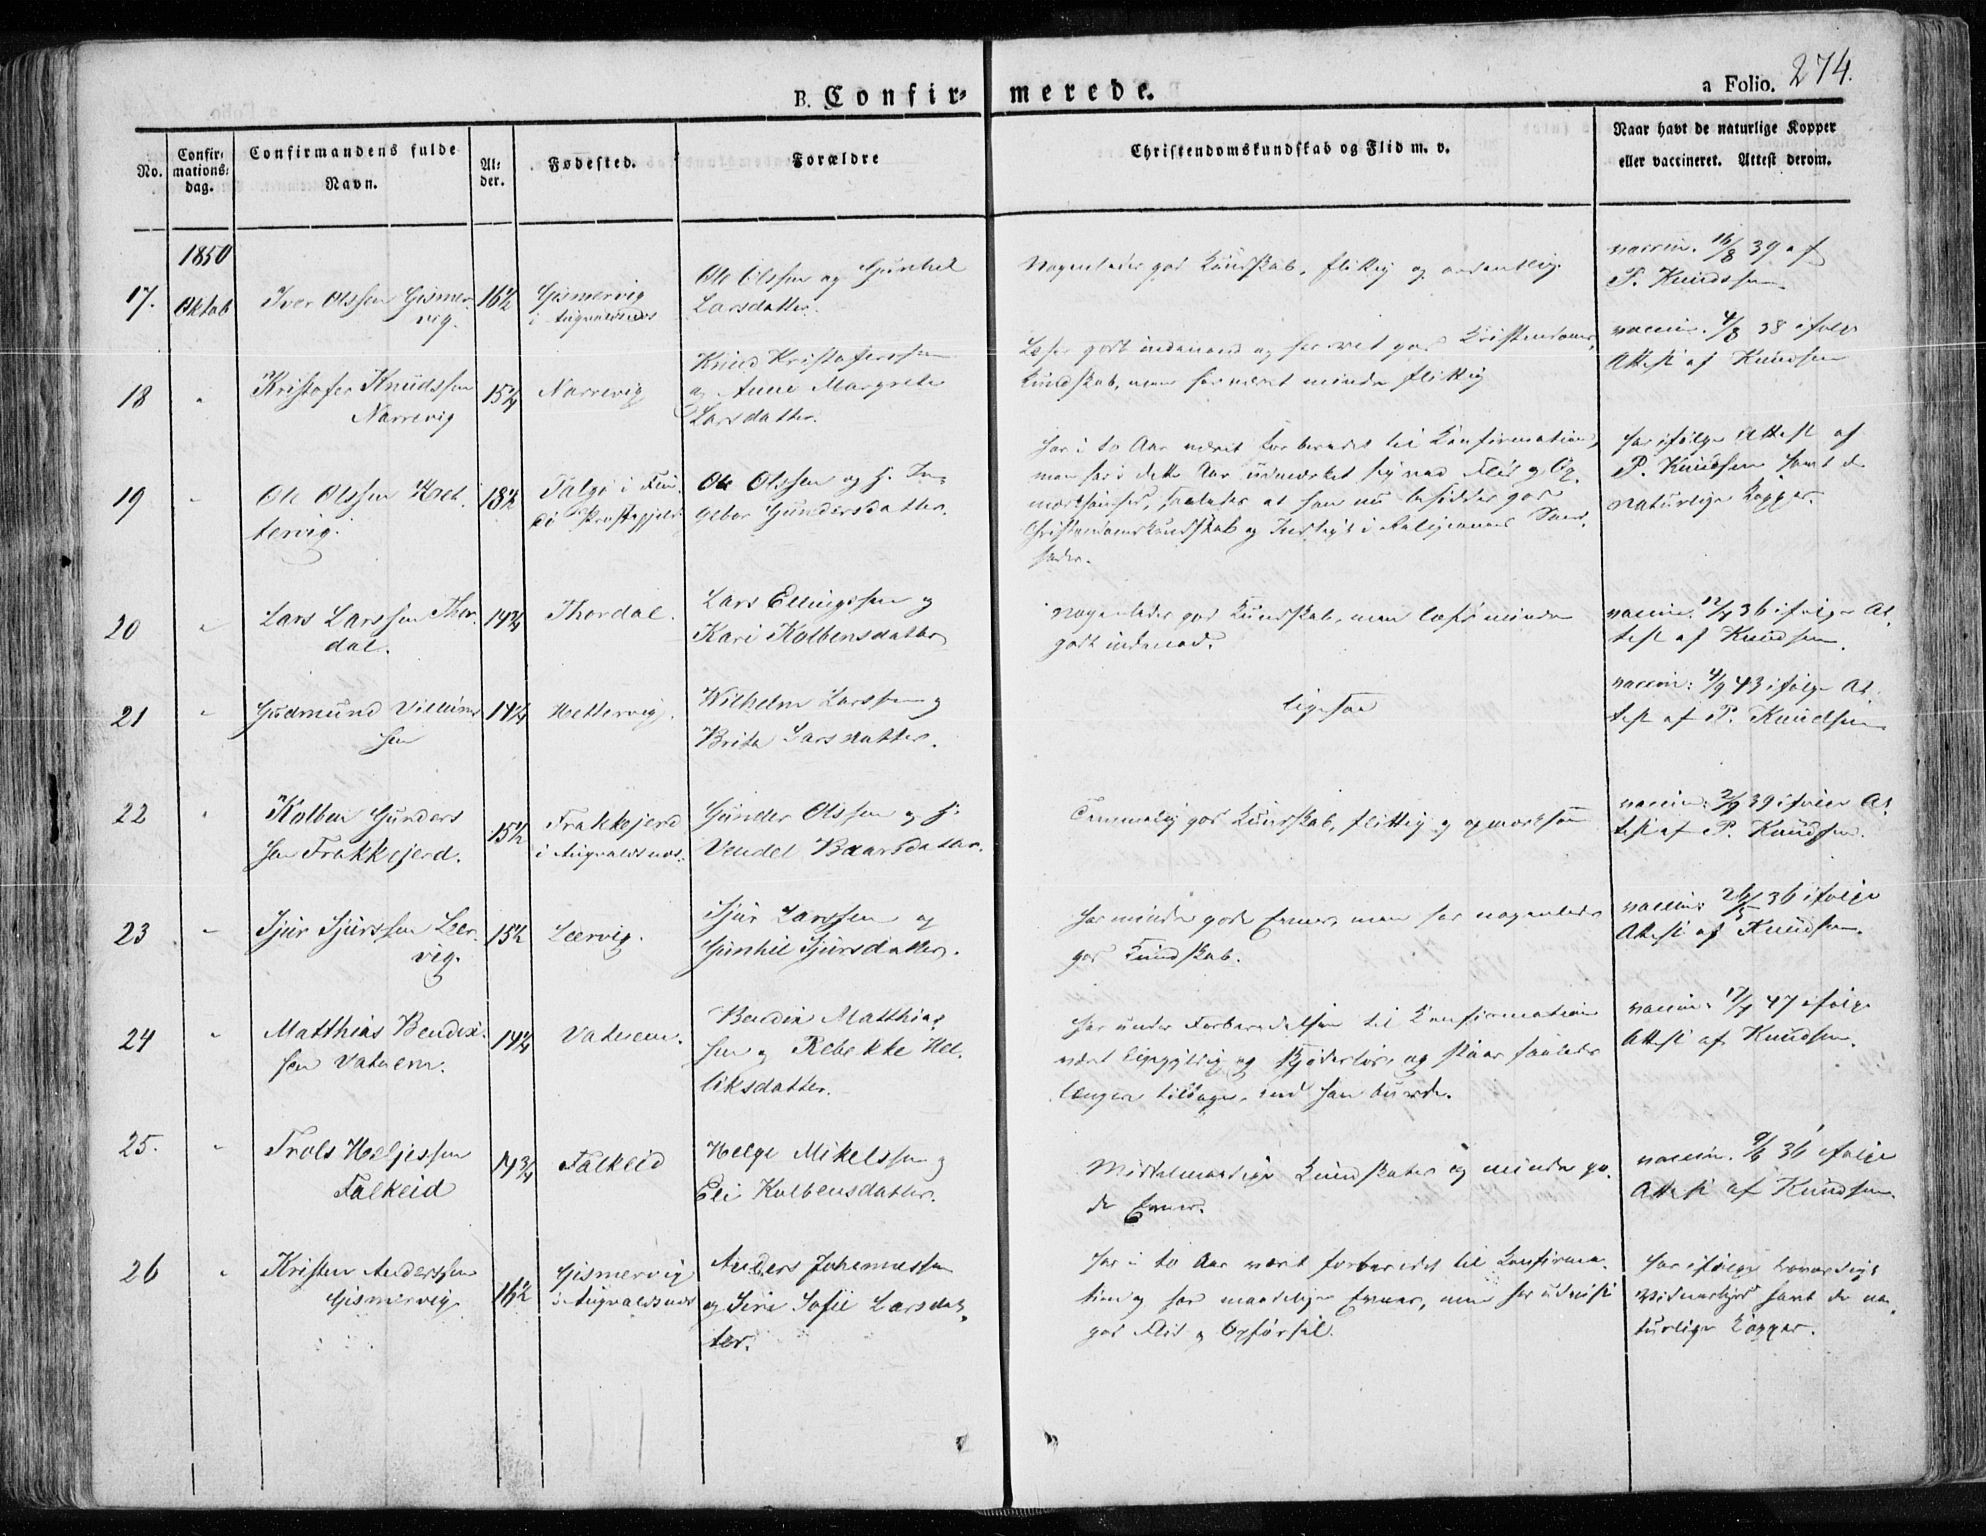 B. Confirmerede.
a Folio. 274.
No.
Confirmationsdag.
Confirmandens fulde Navn.
Alder.
Fødested.
Forældre
Christendomskundskab og Flid m. v.
Naar havt de naturlige Kopper eller vaccineret. Attest derom.
1850
17. Oktob Iver Olssen Gismer-
vig.
16½
Gismervig
i Augvaldsnæs
Ole Olssen og Gunhil
Larsdatter.
Nogenledes god Kundskab, flittig og ordentlig.
vaccin. 16/8 39 af
P. Knudssen
18 " Kristofer Knudssen
Narrevig
15¼
Narrevig
Knud Kristoferssen
og Anne Margrete
Larsdatter.
Læser godt indenad og har ret god Kristendoms-
kundskab, men har været mindre flittig
vaccin. 4/8 38 ifølge
Attest af Knudsen
19 " Ole Olssen Het-
tervig.
18½
Talgø i Fin-
dø Præstegjeld
Ole Olssen og H. In-
gebor Gundersdatter.
Har i to Aar været forberedet til Konfirmation,
men har i dette Aar udmærket sig ved Flid og Op-
mærksomhed, saaledes at han nu besidder god
Christendomskundskab og Indsigt i Religionens Sand-
heder.
Har ifølge Attest af
P. Knudsen havt de
naturlige Kopper.
20 " Lars Larssen Thor-
dal.
14¾
Thordal.
Lars Ellingssen og
Kari Kolbensdatter
Nogenledes god Kundskab, men læser mindre
godt indenad.
vaccin. 12/7 36 ifølge At-
test af Knudsen.
21 " Gudmund Villums-
sen
14¼
Hettervig.
Wilhelm Larssen og
Brita Larsdatter.
ligesaa
vaccin: 4/9 43 ifølge At-
test af P. Knudsen
22 " Kolben Gunders
sen Frakkejerd.
15½
Frakkejerd
i Augvaldsnæs.
Gunder Olssen og H.
Vendel Baarsdatter.
Temmelig god Kundskab, flittig og opmærksom
vaccin: 2/9 39 ifølge At-
test af P. Knudsen.
23 " Sjur Sjurssen Lær-
vig.
15½
Lærvig.
Sjur Larssen og
Gunhil Sjursdatter.
Har mindre gode Evner, men har nogenledes
god Kundskab.
vaccin: 26/5 36 ifølge
Attest af Knudsen.
24 " Matthias Bendix-
sen Vatnem.
14¼
Vatnem.
Bendix Matthias-
sen og Rebekke Hel-
liksdatter.
Har under Forberedelsen til Konfirmation
været ligegyldig og skjødesløs, og staar saaledes
længere tilbage, end han burde.
vaccin: 17/7 47 ifølge
Attest af Knudsen.
25. " Trols Heljessen
Falkeid
14¾
Falkeid
Helge Mikelssen og
Eli Kolbensdatter.
Middelmaadige Kundskaber og mindre go-
de Evner.
vaccin. 9/6 36 ifølge
Attest af Knudsen.
26 " Kristen Anderssen
Gismervig
16½
Gismervig
i Augvaldsnæs
Anders Johannessen
og Siri Sofie Larsdat-
ter.
Har i to Aar været forberedet til Konfirma-
tion og har maadelige Evner, men har udvist
god Flid og Opførsel.
Har ifølge troværdigt
Vidnesbyrd havt de na-
turlige Kopper.